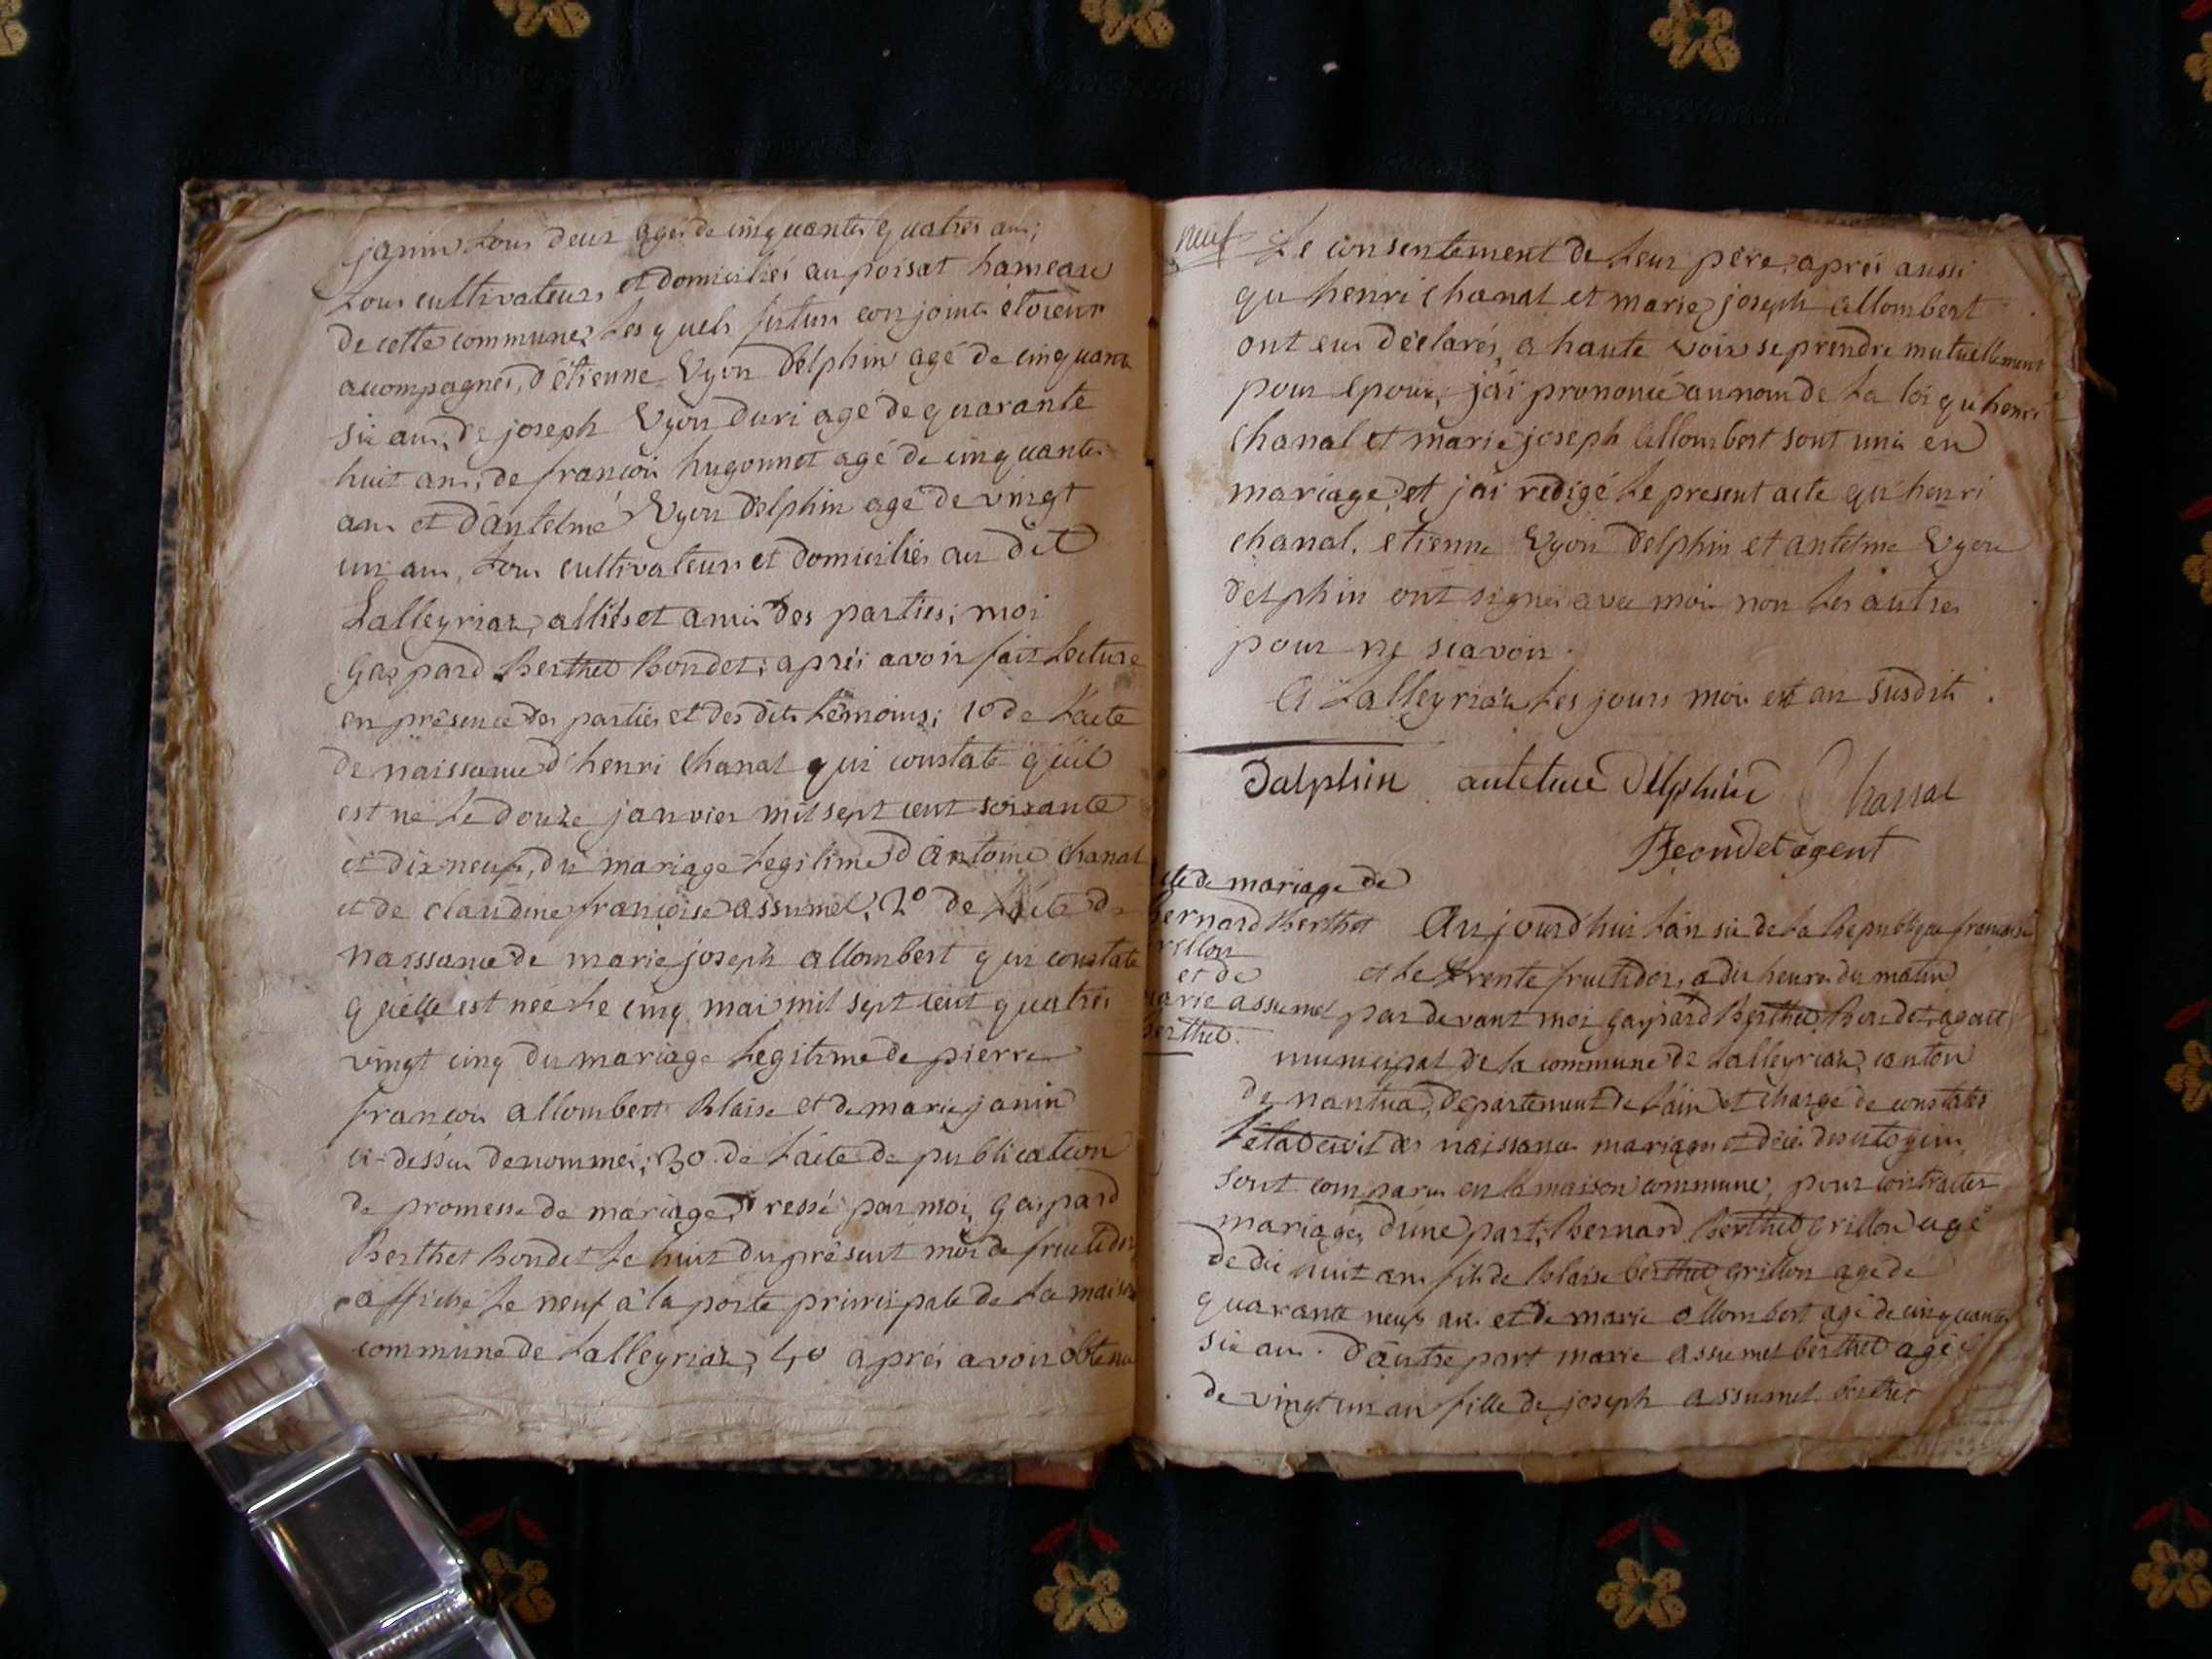 janin tous deux agés de cinquante quatres ans;
tous cultivateurs et domiciliés au poisat hameau
de cette commune, les quels futurs conjoints étoient
acompagnés, d'étienne Vyon Delphin agé de cinquante
six ans, de joseph Vyon Duri agé de quarante
huit ans, de françois hugonnet agé de cinquante
ans et d'antelme Vyon Delphin agé de vingt
un ans, tous cultivateurs et domiciliés au dit
Lalleyriat, alliés et amis des parties; moi
gaspard Berthet Bondet; aprés avoir fait lecture
en présence des parties et des dits témoins; 1o de l'acte
de naissance d'henri chanal qui constate qu'il
est né le douze janvier mil sept cent soixante
et dix neuf, du mariage legitime d'Antoine chanal
et de claudine françoise assumel, 2o de l'acte de
naissance de marie joseph allombert qui constate
qu'elle est née le cinq mai mil sept cent quatres
vingt cinq du mariage legitime de pierre
françois allombert Blaise et de marie janin
ci-dessus denommés; 3o de l'acte de publication
de promesse de mariage, dressé par moi, gaspard
Berthet Bondet le huit du présent mois de fructidor
affiché le neuf à la porte principale de la maison
commune de Lalleyriat, 4o aprés avoir obtenu
neuf
Le consentement de leur père, aprés aussi
qu henri chanal et marie joseph allombert
ont eus déclarés, a haute voix se prendre mutuellement
pour epoux, j'ai prononcé au nom de La loi qu'henri
chanal et marie joseph allombert sont unis en
mariage, et j'ai redigé le present acte qu'henri
chanal, etienne Vyon Delphin et antelme Vyon
Delphin ont signés avec moi non les autres
pour ne scavoir.
A Lalleyriat les jours mois et an susdits.
Dalphin antelme Delphin Chanal
Beondet agent
cte de mariage de
Bernard Berthet
rillon
et de
marie assumel
berthet.
Aujourd'hui l'an six de La Republique françoise
et le trente fructidor, a dix heures du matin
par devant moi gaspard Berthet Bondet, agent
municipal de la commune de Lalleyriat, canton
de nantua, Departement de l'ain et chargé de constater
l'état civil des naissances mariages et décès des citoyens,
sont comparus en la maison commune, pour contracter
mariage, d'une part, Bernard Berthet grillon agé
de dix huit ans fils de Blaise berthet grillon agé de
quarante neuf ans et de marie allombert agé de cinquante
six ans. D'autre part marie assumel berthet agée
de vingt un an fille de joseph assumel berthet